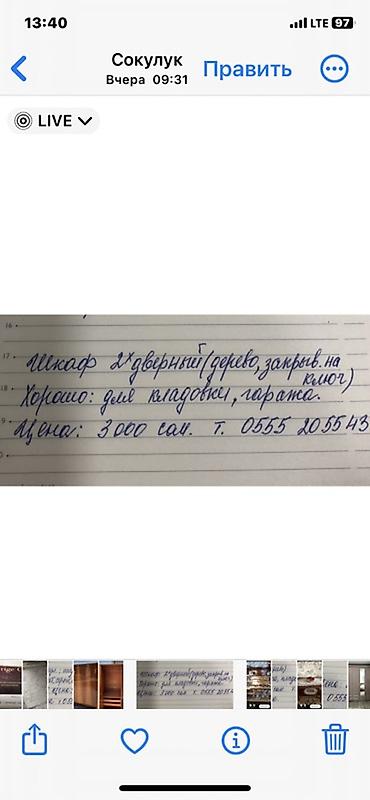 13:40
LTE 97
Сокулук
Вчера 09:31
Править
LIVE
16
17
Шкаф 2х дверный (дерево, закрыв. на
ключ)
18
Хорошо: для кладовки, гаража.
Цена: 3000 сом. т. 0555 205543